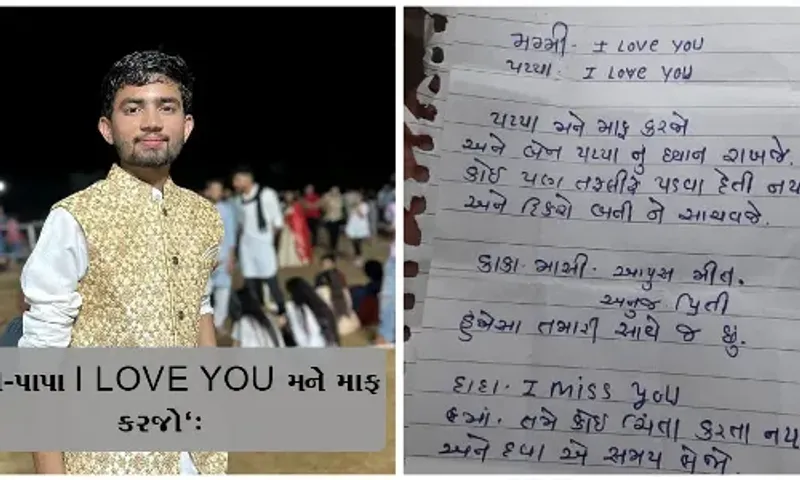 -પાપા I LOVE YOU મને માફ
કરજો‘:
મમ્મી. I LOVE YOU
પપ્પા. I LOVE YOU
પપ્પા મને માફ કરજો
અને બેન પપ્પા નુ ધ્યાન રાખજે.
કોઈ પણ તકલીફ પડવા દેતી નય
અને દિકરો બની ને સાચવજે.
કાકા. માસી. આયુસ મીત.
અનુજ પ્રિતી
હંમેસા તમારી સાથે જ છુ.
દાદા. I MISS YOU
તમે કોઈ ચિંતા કરતા નય
અને દવા એ સમય લેજો